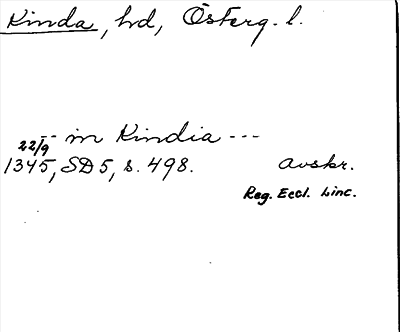 Kinda, hd, Österg. l.
-- in Kindia ---
22/9
1345, SD 5, s. 498. avskr.
Reg. Eccl. Linc.